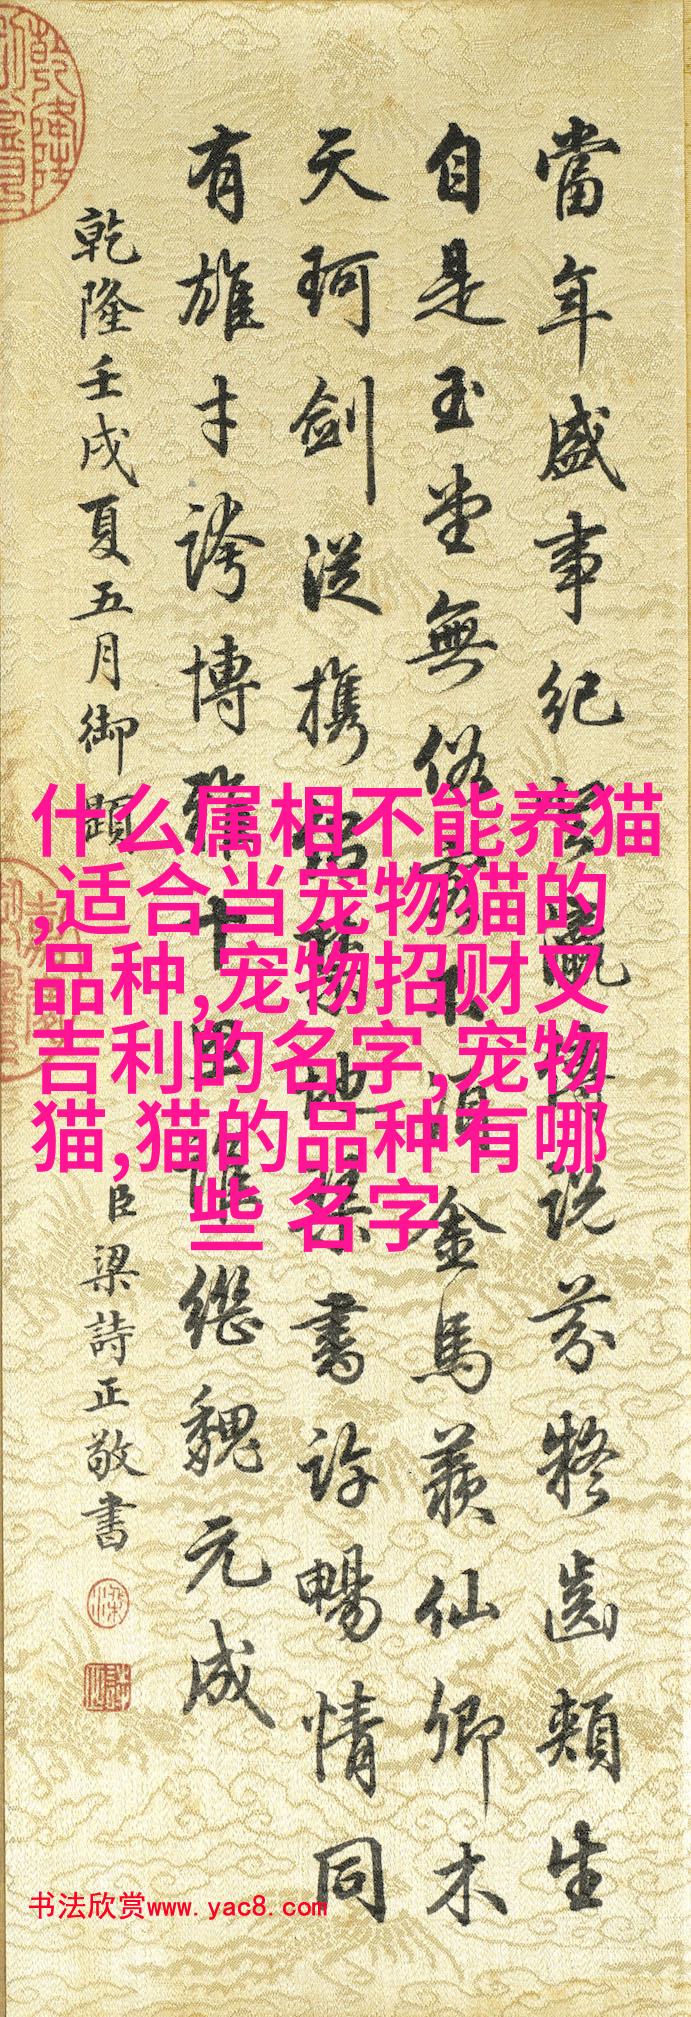 當年盛事紀登瀛說芬齒頰生
自是玉堂無俗不須金馬羨仙卿木
天珂劍從攜豫地琴書許暢情同
有雄才誇博雅十臣誰繼魏元成
乾隆壬戌夏五月御題
臣梁詩正敬書
什么属相不能养猫
,适合当宠物猫的
品种,宠物招财又
吉利的名字,宠物
猫,猫的品种有哪
些 名字
书法欣赏www.yac8.com